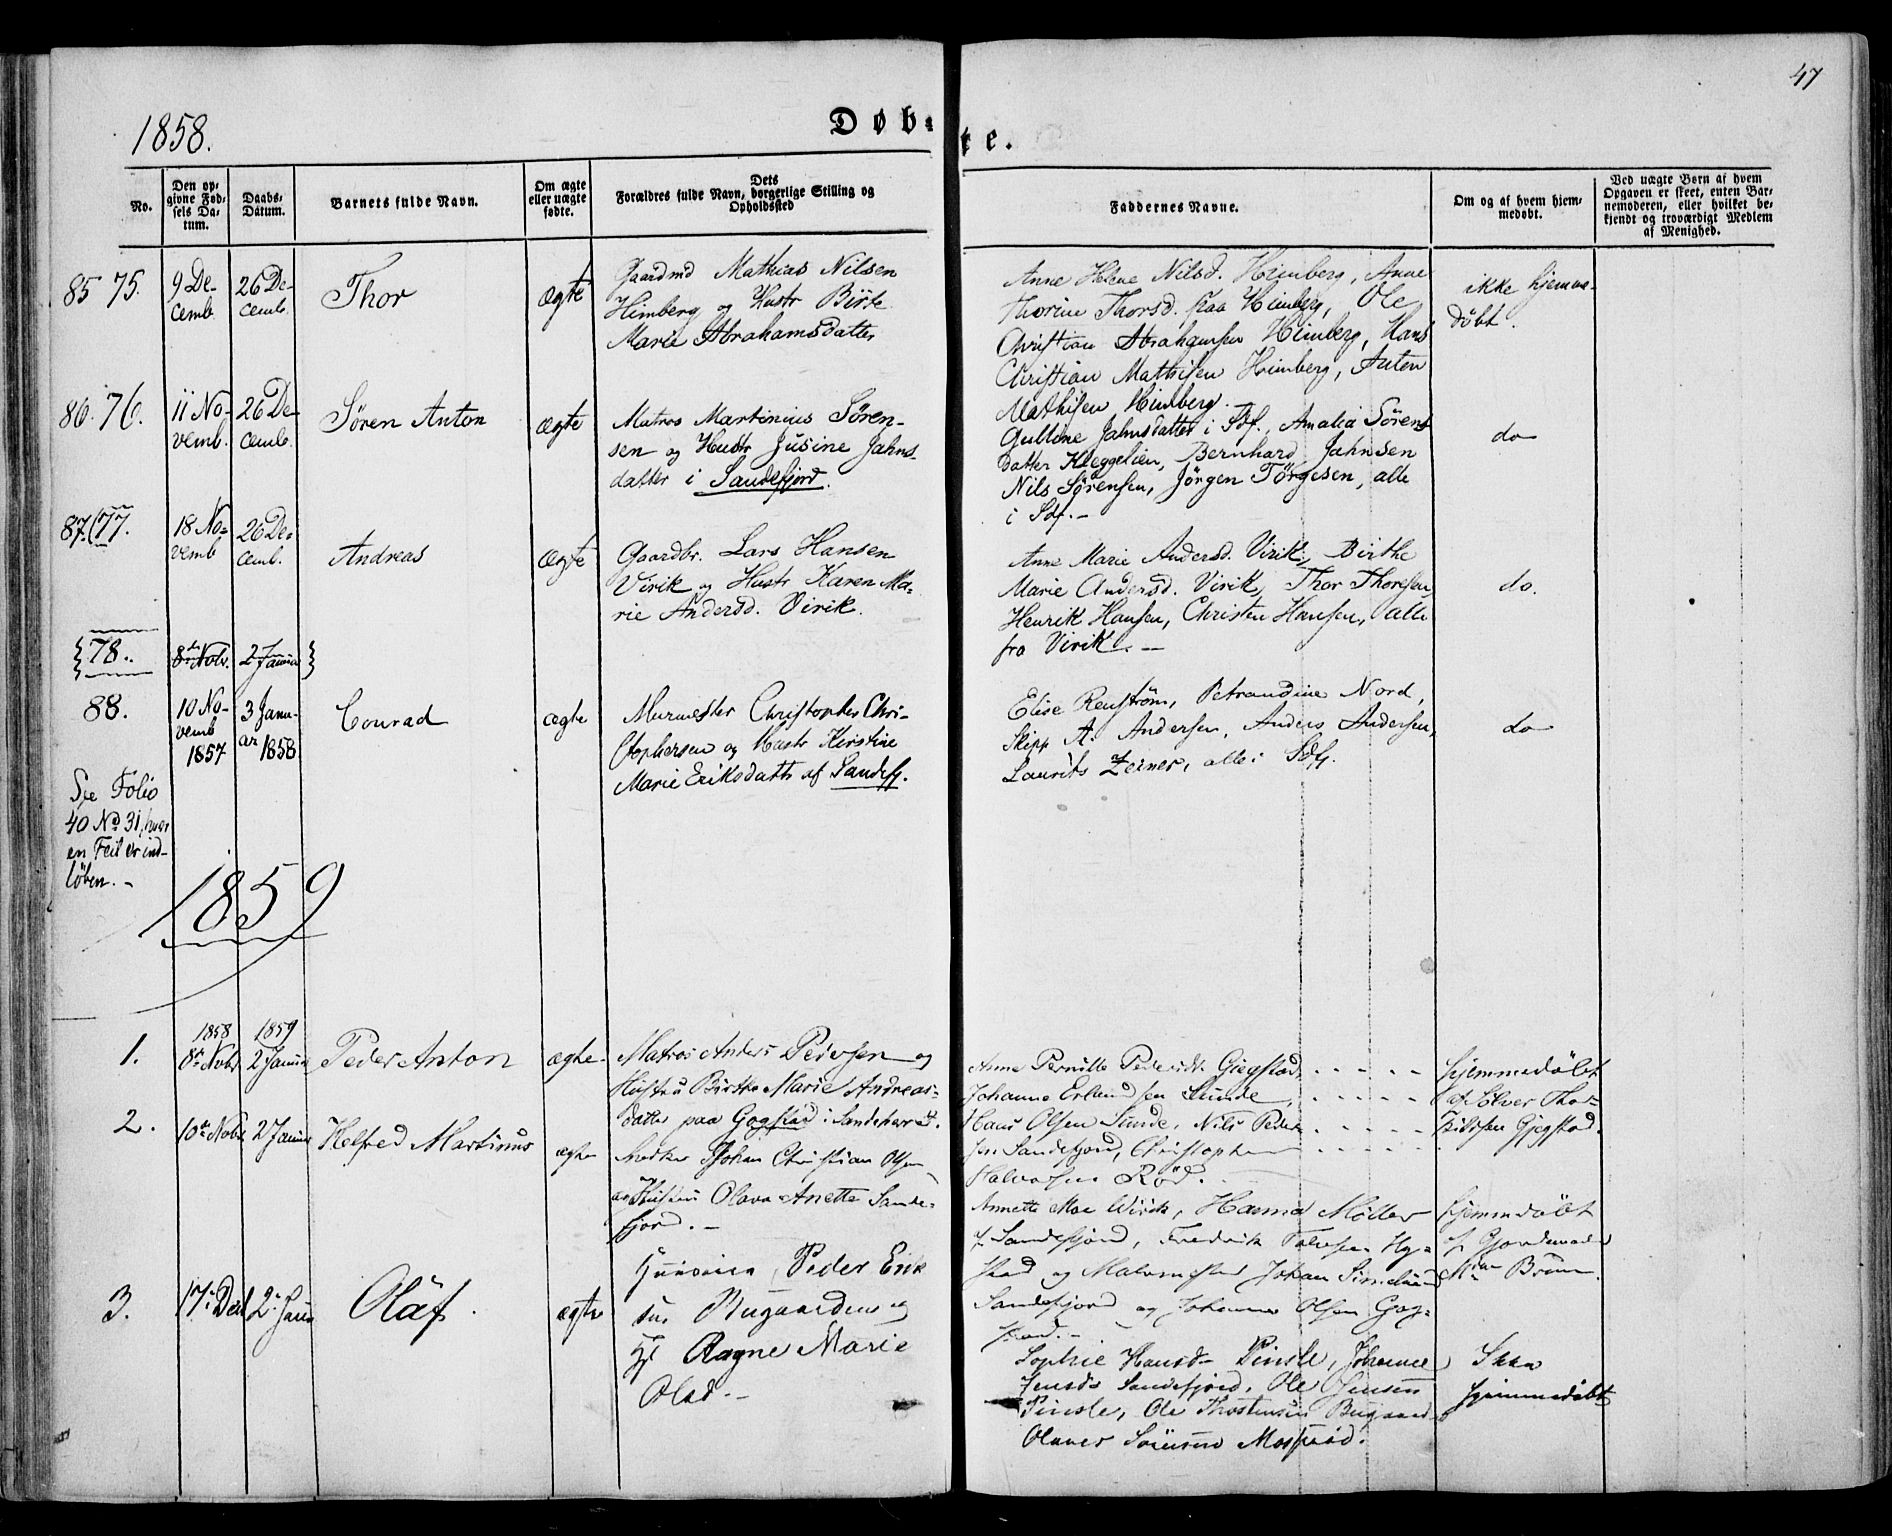 47
1858.
Døb-
te.
No.
Den op-
givne Fød-
sels Da-
tum.
Daabs-
Datum.
Barnets fulde Navn.
Om ægte
eller uægte
fødte.
Dets
Forældres fulde Navn, borgerlige Stilling og
Opholdssted
Faddernes Navne.
Om og af hvem hjem-
medøbt.
Ved uægte Børn af hvem
Opgaven er skeet, enten Bar-
nemoderen, eller hvilket be-
kjendt og troværdigt Medlem
af Menighed.
85 75.
9 De-
cemb.
26 De-
cemb.
Thor
ægte
Gaardmd Mathias Nilsen
Himberg og Hustr Birte
Marie Abrahamsdatter
Anne Helene Nilsd. Himberg, Anne
Thorine Thorsd. paa Himberg, Ole
Christian Abrahamsen Himberg, Hans
Christian Mathisen Himberg, Anten
Mathisen Himberg.
ikke hjemme-
døbt.
86. 76.
11 No-
vemb.
26 De-
cemb.
Søren Anton
ægte
Matros Martinius Søren-
sen og Hustr Jusine Jahns-
datter i Sandefjord.
Gulline Jahnsdatter i Sdf., Amalia Sørens
datter Kleggelien, Bernhard Jahnsen
Nils Sørensen, Jörgen Törgesen, alle
i Sdf.-
do
87. 77.
18 No-
vemb
26 De-
cemb.
Andreas
ægte
Gaardbr. Lars Hansen
Virik og Hustr Karen Ma-
rie Andersd. Virik.
Anne Marie Andersd. Virik, Birthe
Marie Andersd. Virik, Thor Thoresen,
Henrik Hansen, Christen Hansen, alle
fra Virik.-
do.
78.
8de Novb.
2 Januar
88.
10 No-
vemb
1857
3 Janu-
ar
1858
Conrad
ægte
Murmester Christopher Chri-
stophersen og Hustr Kirstine
Marie Eriksdattr af Sandefj.
Elise Renström, Petrandine Nord,
Skipp A. Andersen, Anders Andersen,
Laurits Zeiner, alle i Sdfj.
do
See Folio
40 No 31, hvor
en Feil er ind-
løben.-
1859
1.
1858
8de Novbr
1859
2 Januar
Peder Anton
ægte
Matros Anders Pedersen og
Hustru Birthe Marie Andreas-
datter paa Gogstad i Sandeherred.
Anne Pernille Pedersdt. Gjegstad,
Johanne Erlandsen Sunde,
Hans Olsen Sunde, Nils Peder-
sen Sandefjord, Christopher
Halvorsen Rød.
hjemmedøbt
af Sølver Thor-
kildsen Gjegstad.
2.
10de Novbr.
2 Januar
Helfred Martinus
ægte
Snedker Johan Christian Olsen
og Hustru Olava Anette Sande-
fjord.-
Annette Moe Virik, Hanna Møller
af Sandefjord, Fredrik Hy-
stad og Malermester Johan
Sandefjord og Johannes Olsen Gog-
stad.-
hjemmedøbt
af Gjordemoder
Brun.
3.
17. Decb
2. Janu
Olaf.
ægte
Peder Erik
sen Bugaarden og
H. Ragne Marie
Olsd.-
Sophie Hansd- Pinsle, Johanne
Jensd. Sandefjord, Ole Jensen
Pinsle, Ole Thostensen Bugaard
Olaves Sørensen Mosserød.
Ikke
hjemmedøbt